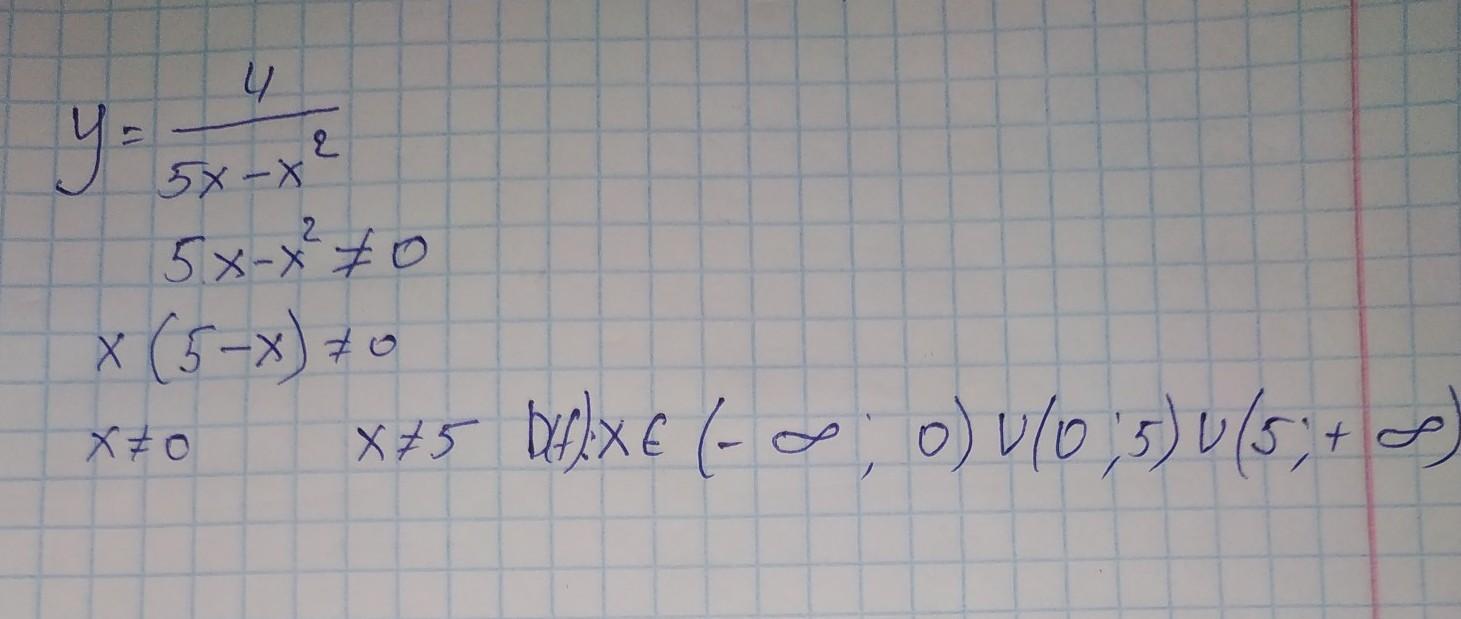 y = 4 / (5x - x²)
5x - x² ≠ 0
x (5 - x) ≠ 0
x ≠ 0 x ≠ 5 D(f): x ∈ (- ∞ ; 0) ∪ (0 ; 5) ∪ (5 ; + ∞)